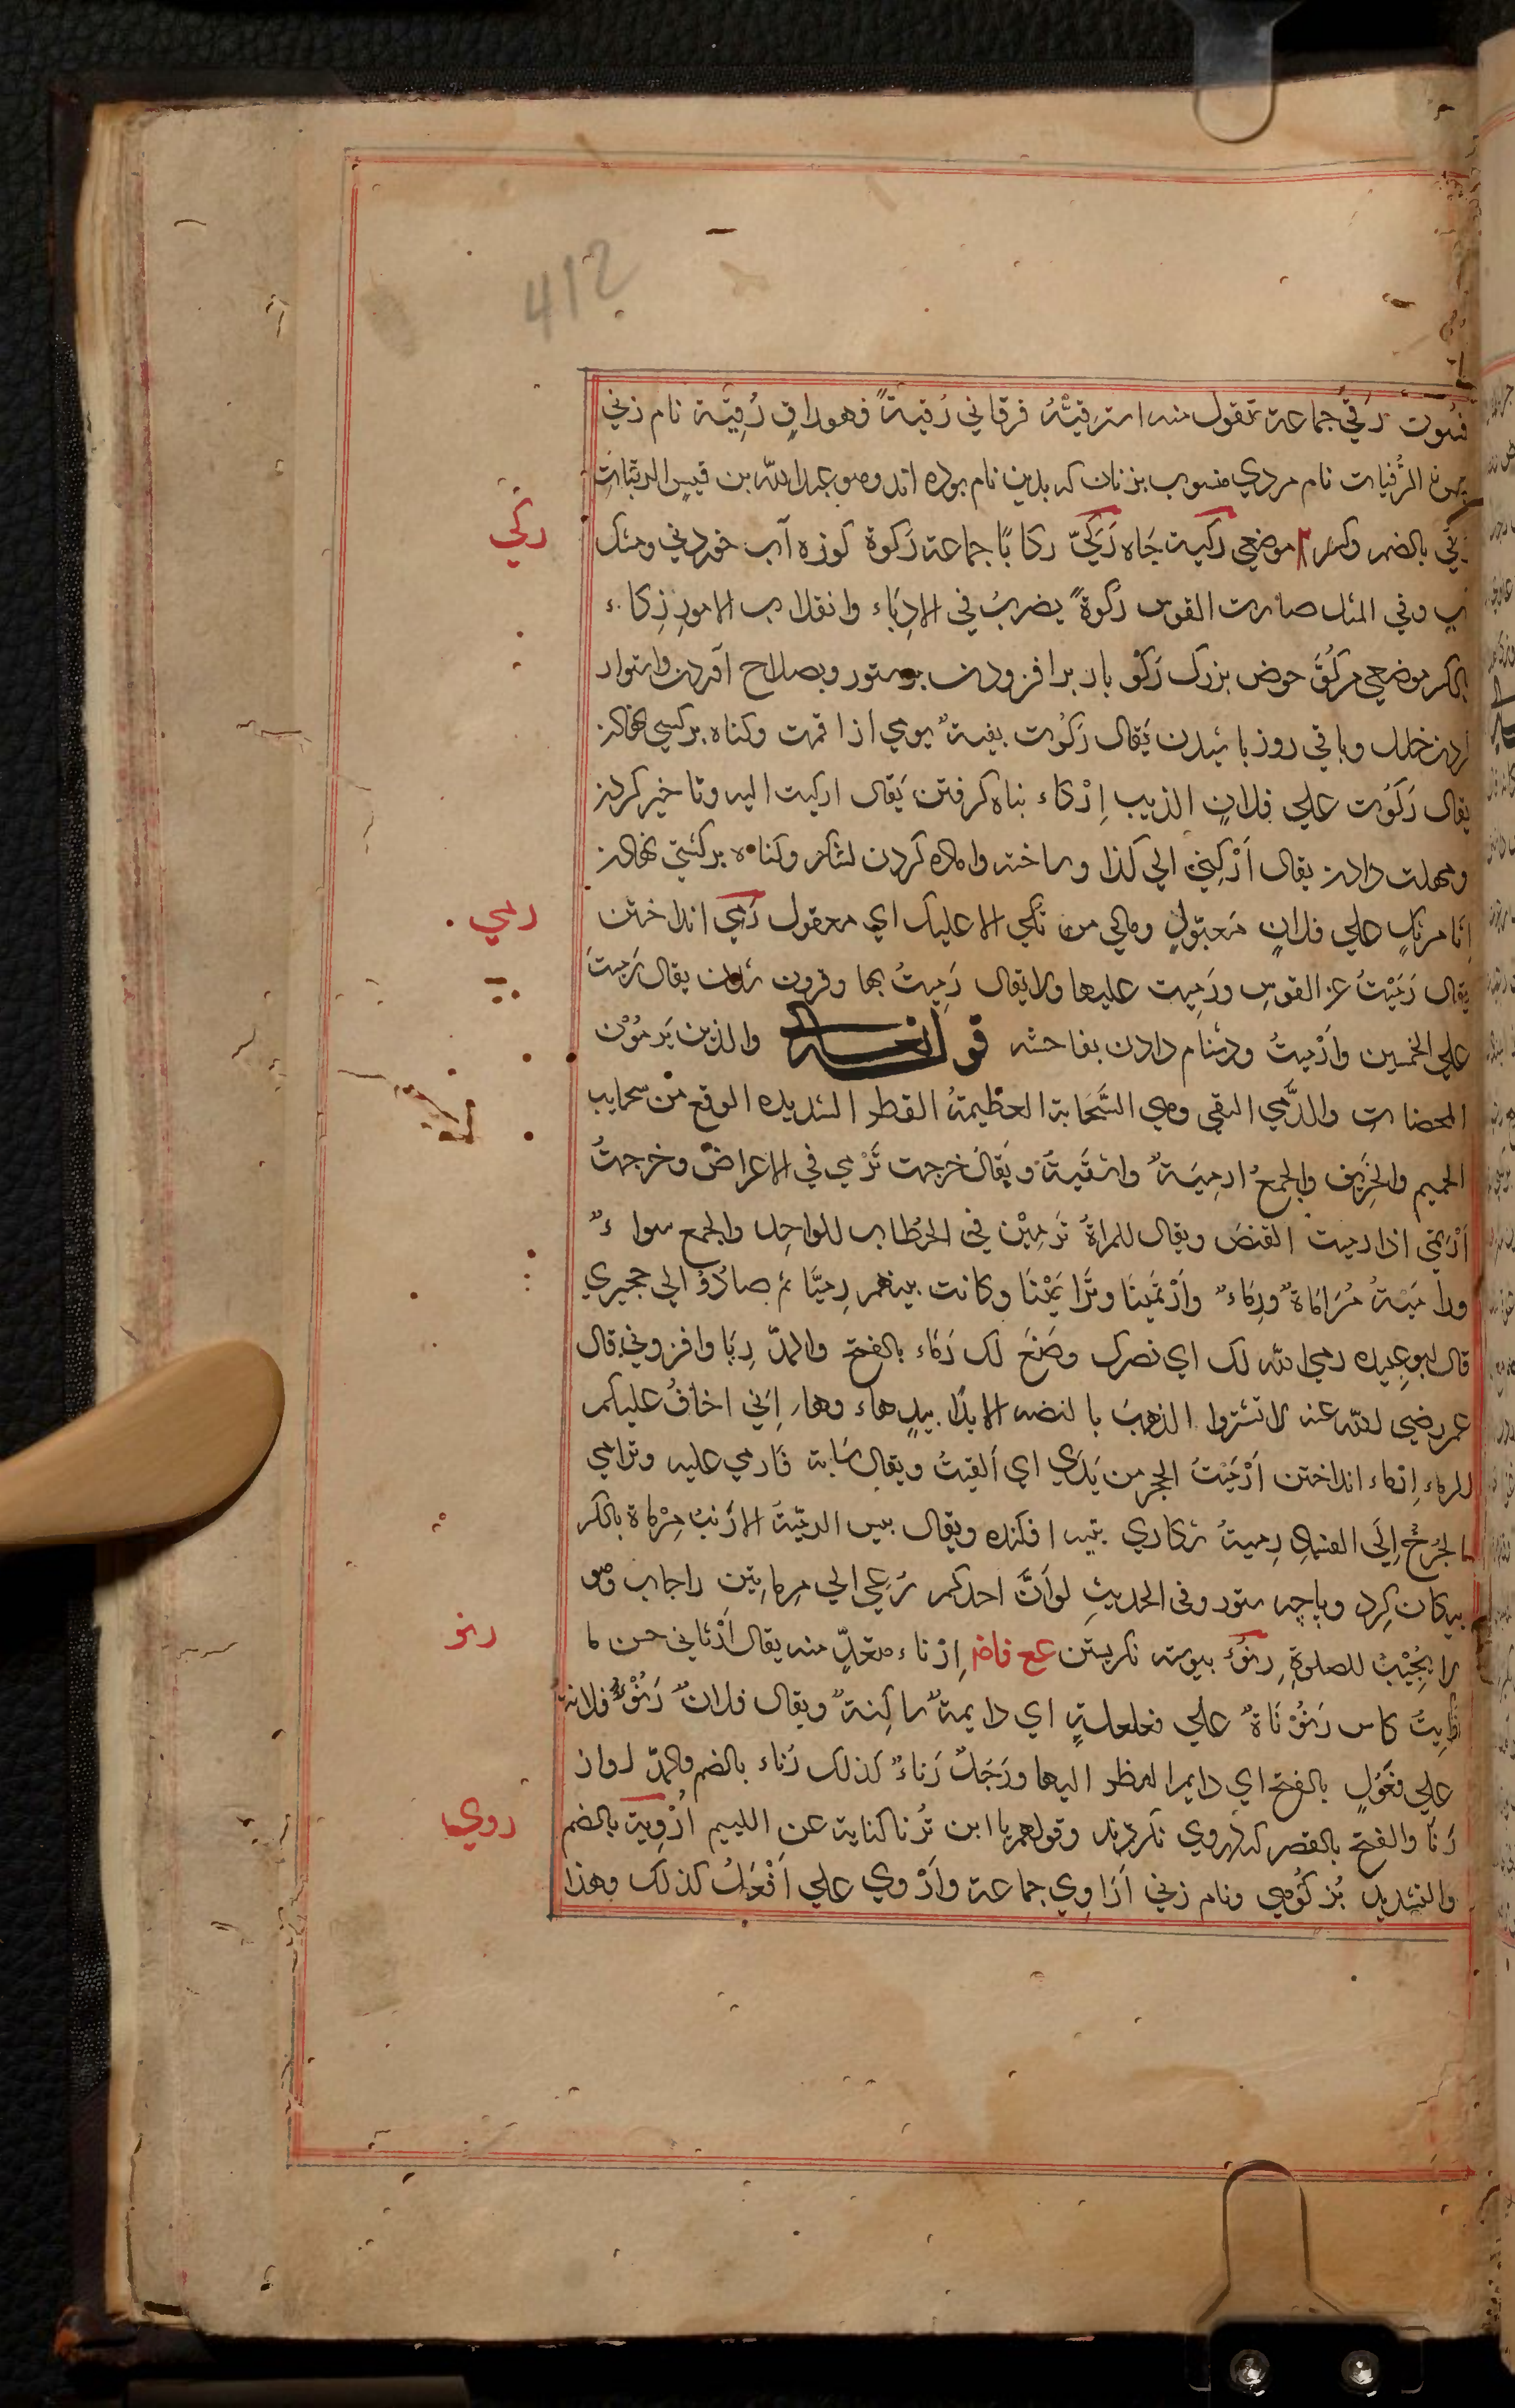 412
فسون رُقيً جماعة تقول منه استرقيتُهُ فرقاني رُقيةً فهو راقٍ رُقيّة نام زني
الرُّقيات نام مردي منسوب بزنان كه بدين نام بوده اند وهو عبد الله بن قيس الرقيّاتِ
ركي
بالضم وكسر موضعي ركية چاه رَكِيّ ركايا جماعة رَكوة كوزه آب خوردني ومشك
وفي المثل صارت القوس ركوةً يضربُ في الادباء وانقلاب الامورِ رِكاء
بالكسر موضعي مركُوّ حوض بزرك رَكْو بار برافزودن بر ستور وبصلاح آوردن واستوار
خلل وباقي روز باشيدن يقال رَكَوت بقيةَ يومي اذا قمت وكناه بر كسي نهادن
يقال رَكَوت علي فلانٍ الذنب اِرْكاء پناه كرفتن يقال اركيت اليه وتاخير كردن
ومهلت دادن يقال اَرْكِني الي كذا وساخته واماده كردن لشكر وكناه بر كسي نهادن
رمي
انا مرتكٍ علي فلانٍ ومالي من الا عليك اي معقول رَمي انداختن
يقال رَمَيْتُ عن القوسِ ورَميت عليها ولا يقال رَميتُ بها وفزون شدن يقال رَميتَ
علي الخمسين واَرْميتُ ودشنام دادن بفاحشه قوله تعالى والذين يَرمُوْنَ
المحصنات والرَّمي السقي وهي السَّحَابة العظيمةُ القطر الشديده الوقع من سحايب
الحميم والخريف والجمعُ ارمِيَةٌ واسقيةٌ ويقالُ خرجت تَرْمي في الاغراض وخرجتُ
اَرْتمي اذا رميت القنصَ ويقال للمراةُ تَرمِيْن في الخطاب للواحد والجمع سواءٌ
وراميتهُ مُرَاماةً ورِماءً واَرْتمَينَا وتَرَامَيْنَا وكانت بينهم رِميّا ثم صاروا الي حجيري
قال ابو عبيده رمي الله لك اي نصرك وصَنَعَ لك رَمَاء بالفتح والمدّ رِبَا وافزوني قال
عمر رضي لله عنه لا تشتروا الذهبَ بالفضه الا يدًا بيدٍ هاء وهاء اِنّي اخافُ عليكم
الرماء اِرماء انداختن اَرْمَيْتُ الحجر من يَدِي اي القيتُ ويقال سَابّه فَارمي عليه وترامي
الجُرحُ اِلَى الفساد رميةُ شكاري بتير افكنده ويقال بيس الرميّةُ الارنبُ مِرْماة بالكسر
پيكان كِرد وپاچه ستور وفي الحديثِ لو اَنَّ احدكم دُعي الي مِرماتين لاجاب وهو
رنو
لا يجيبُ للصلوةِ رنُوّ پيوسته نكريستن عع فاض اِرْناء متعدٍّ منه يقال اَرْنَاني حسن ما
رايتُ كاس رَنَوْنَاةٌ علي فعلعلةٍ اي دايمةٌ ساكنةٌ ويقال فلانٌ رَنُوُّ فلانةَ
علي فعُولٍ بالفتح اي دايم النظر اليها ورَجَلٌ رَناءٌ كذلك رُناء بالضم والمدّ اواز
روي
رَنَا والفتح بالقصر كه دروي نكرند وقولهم يا ابن تُرنا كناية عن اللييم اُرْوِيّة بالضم
والتشديد بُز كُوهي ونام زني اَرَاوِي جماعة واَرْوي علي اَفْعَلُ كذلك وهذا